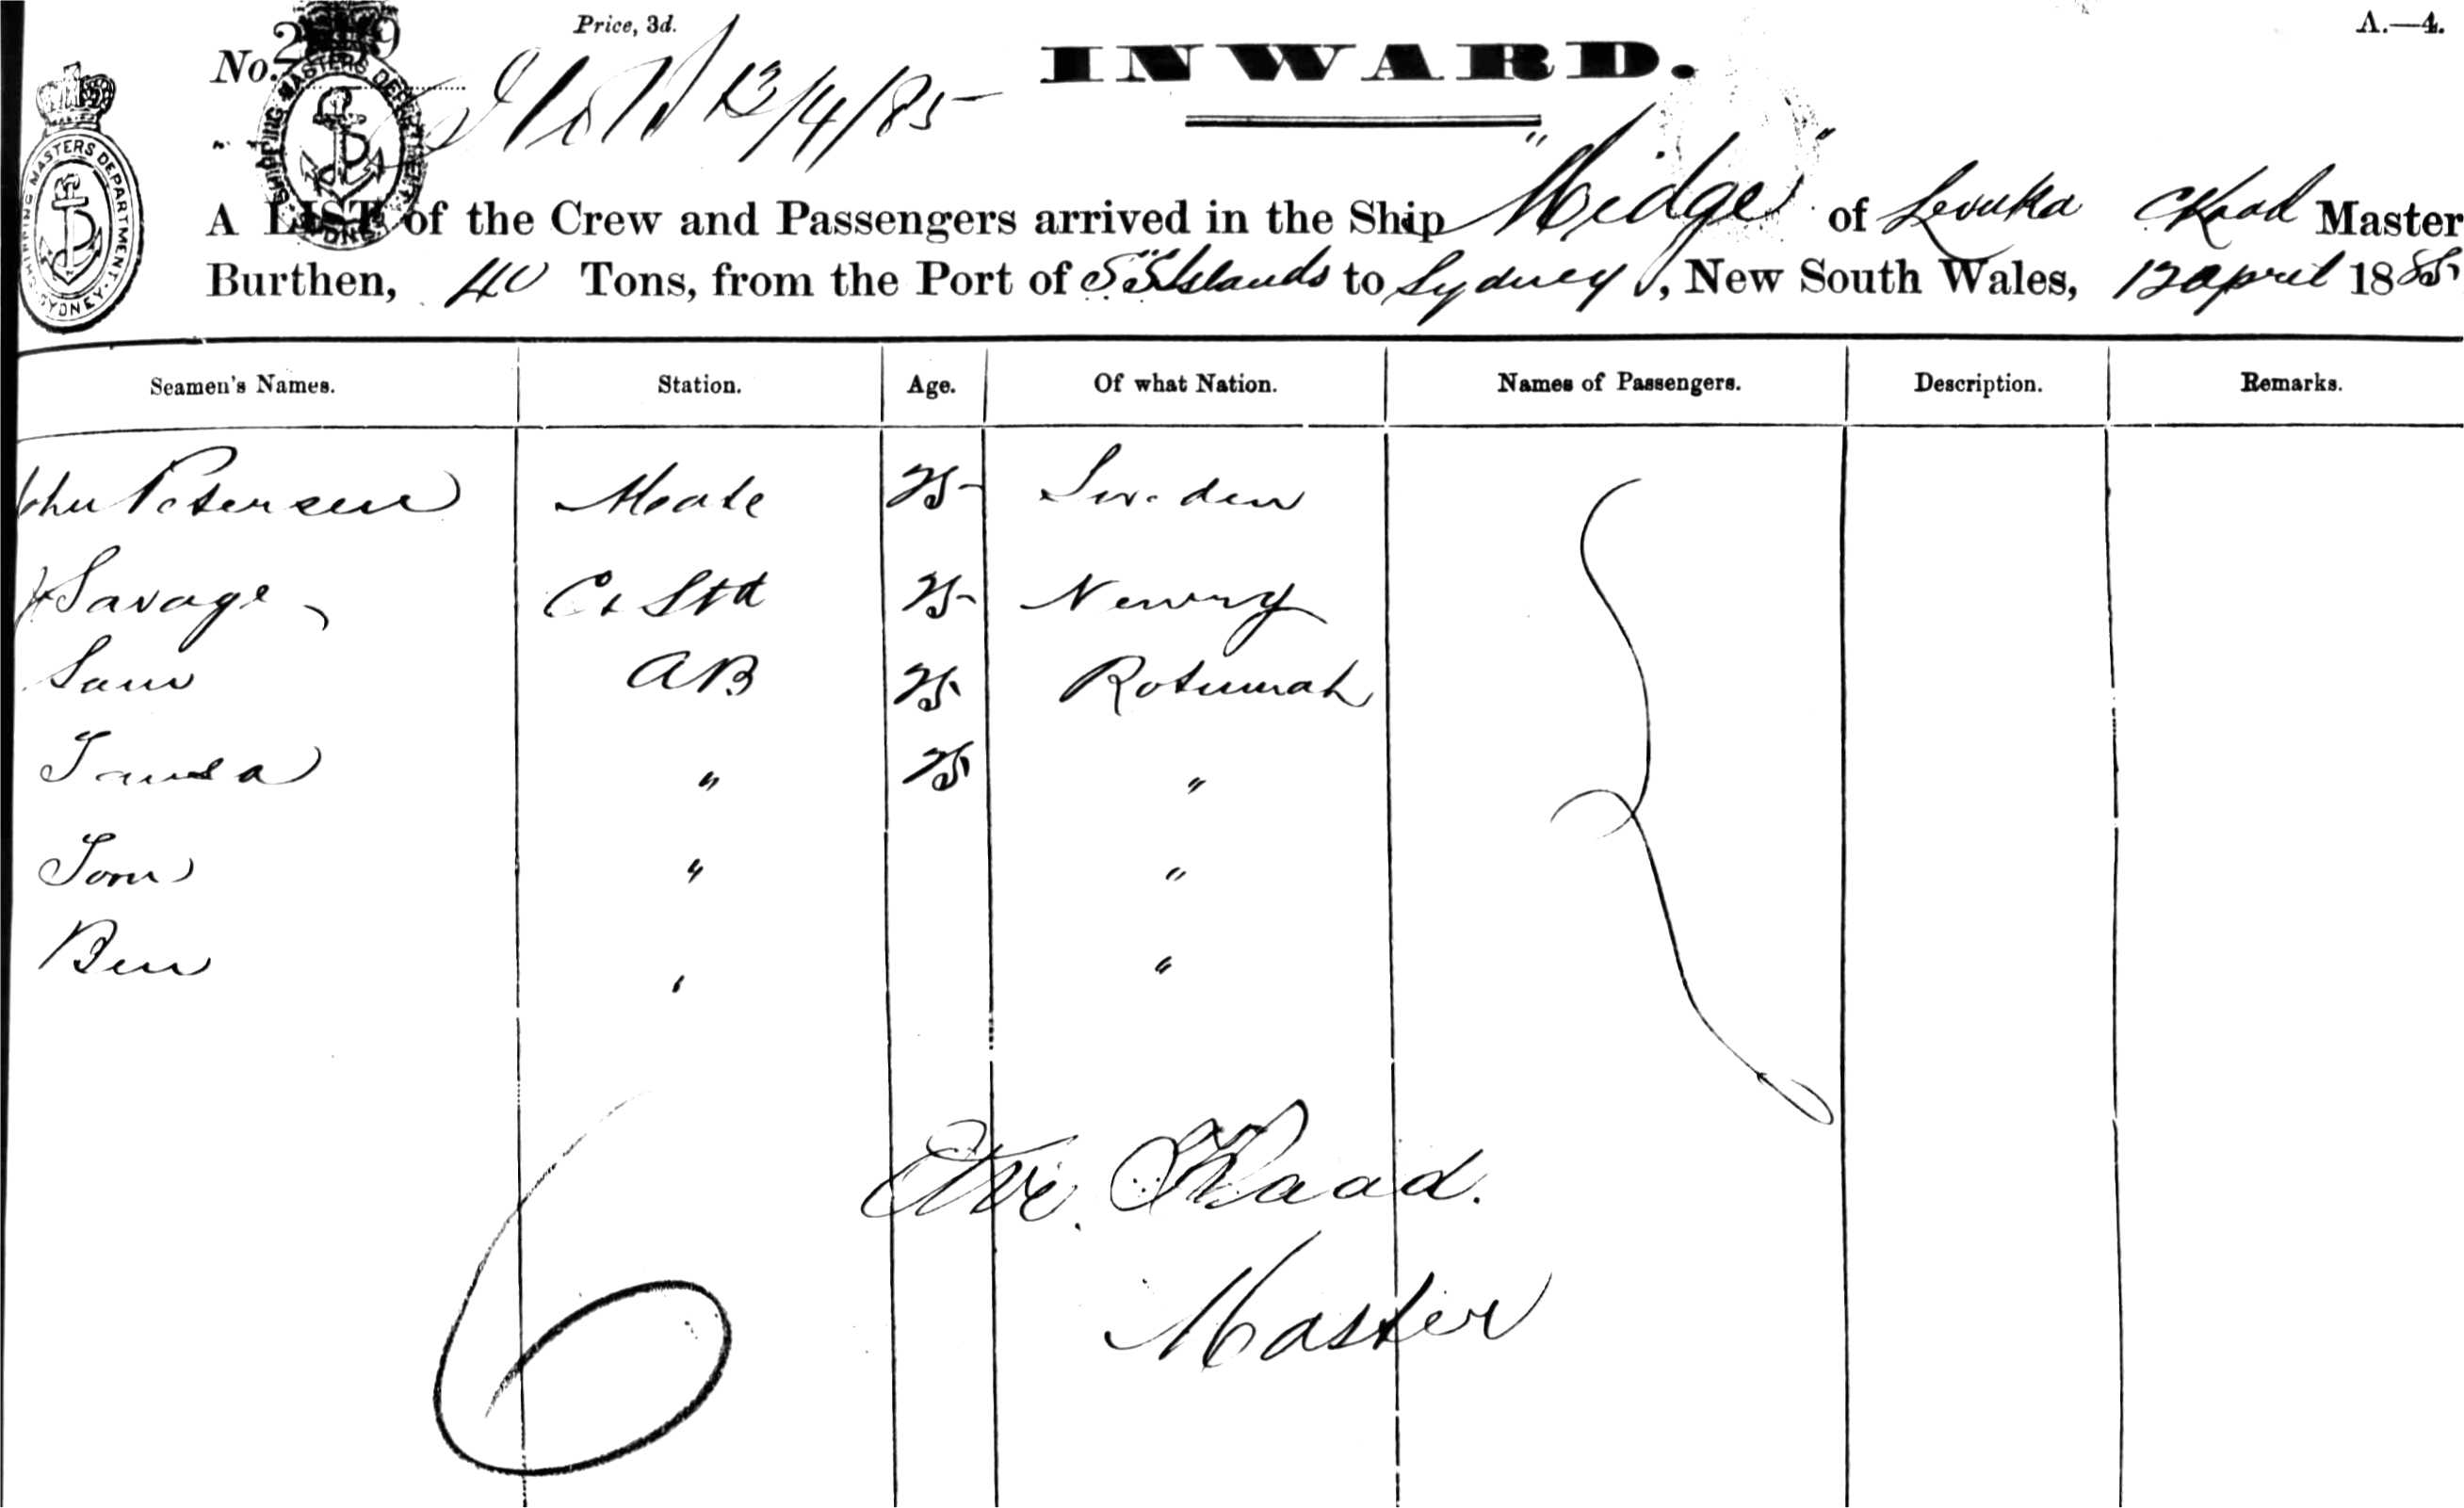 Price, 3d.
A.—4.
No.
INWARD.
13/4/85
SHIPPING MASTERS DEPARTMENT. SYDNEY.
SHIPPING MASTERS DEPARTMENT
A LIST of the Crew and Passengers arrived in the Ship "Midge" of Levuka Master
Burthen, 40 Tons, from the Port of S S Islands to Sydney, New South Wales, 12 april 1885
Seamen's Names. Station. Age. Of what Nation. Names of Passengers. Description. Remarks.
John Petersen Mate 25 Sweden
Savage Ck Std 25 Newry
Sam AB 25 Rotumah
" 25 "
Tom " "
Ben " "
Kaad.
Master
6